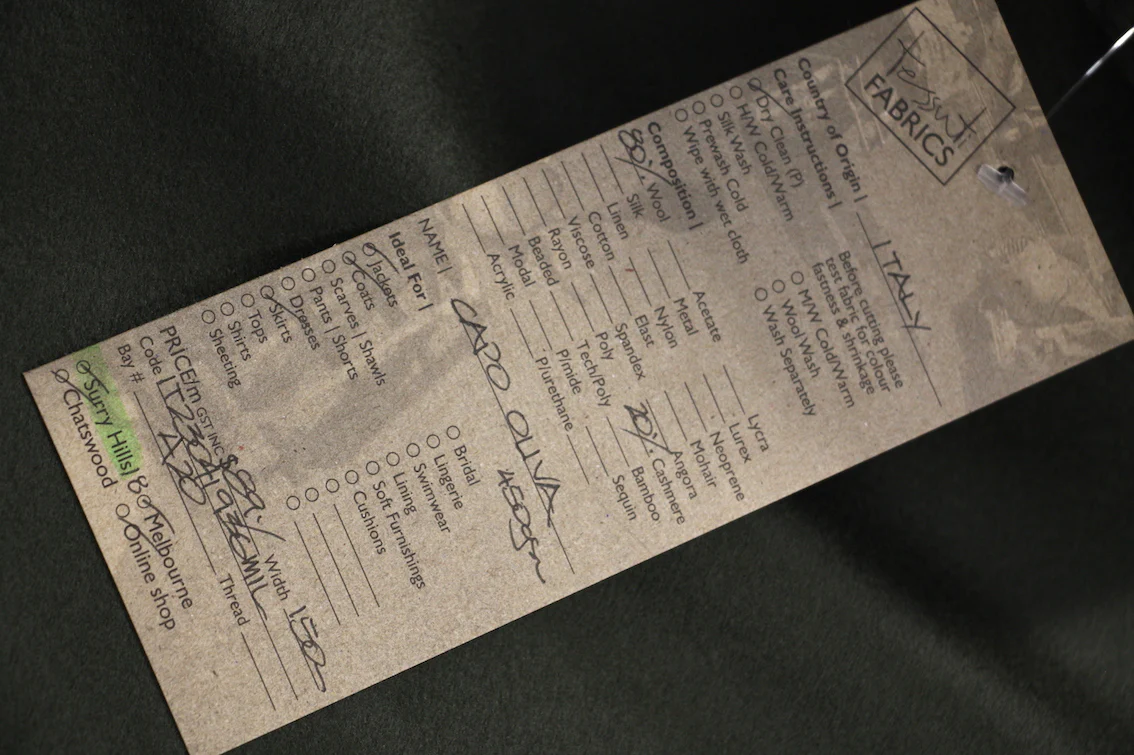 Tessuti
FABRICS
Country of Origin | ITALY
Care Instructions |
Dry Clean (P)
H/W Cold/Warm
Silk Wash
Prewash Cold
Wipe with wet cloth
Before cutting please
test fabric for colour
fastness & shrinkage
M/W Cold/Warm
Wool Wash
Wash Separately
Composition |
80% Wool
Silk
Linen
Cotton
Viscose
Rayon
Beaded
Modal
Acrylic
Acetate
Metal
Nylon
Elast
Spandex
Poly
Tech/Poly
P/mide
P/urethane
Lycra
Lurex
Neoprene
Mohair
Angora
20% Cashmere
Bamboo
Sequin
NAME | CAPO OLIVA
450gsm
Ideal For |
Jackets
Coats
Scarves | Shawls
Pants | Shorts
Dresses
Skirts
Tops
Shirts
Sheeting
Bridal
Lingerie
Swimwear
Lining
Soft Furnishings
Cushions
PRICE/m GST INC $99./ Width 150
Code |
Bay # A20 Thread
Surry Hills | 8 Melbourne
Chatswood Online shop